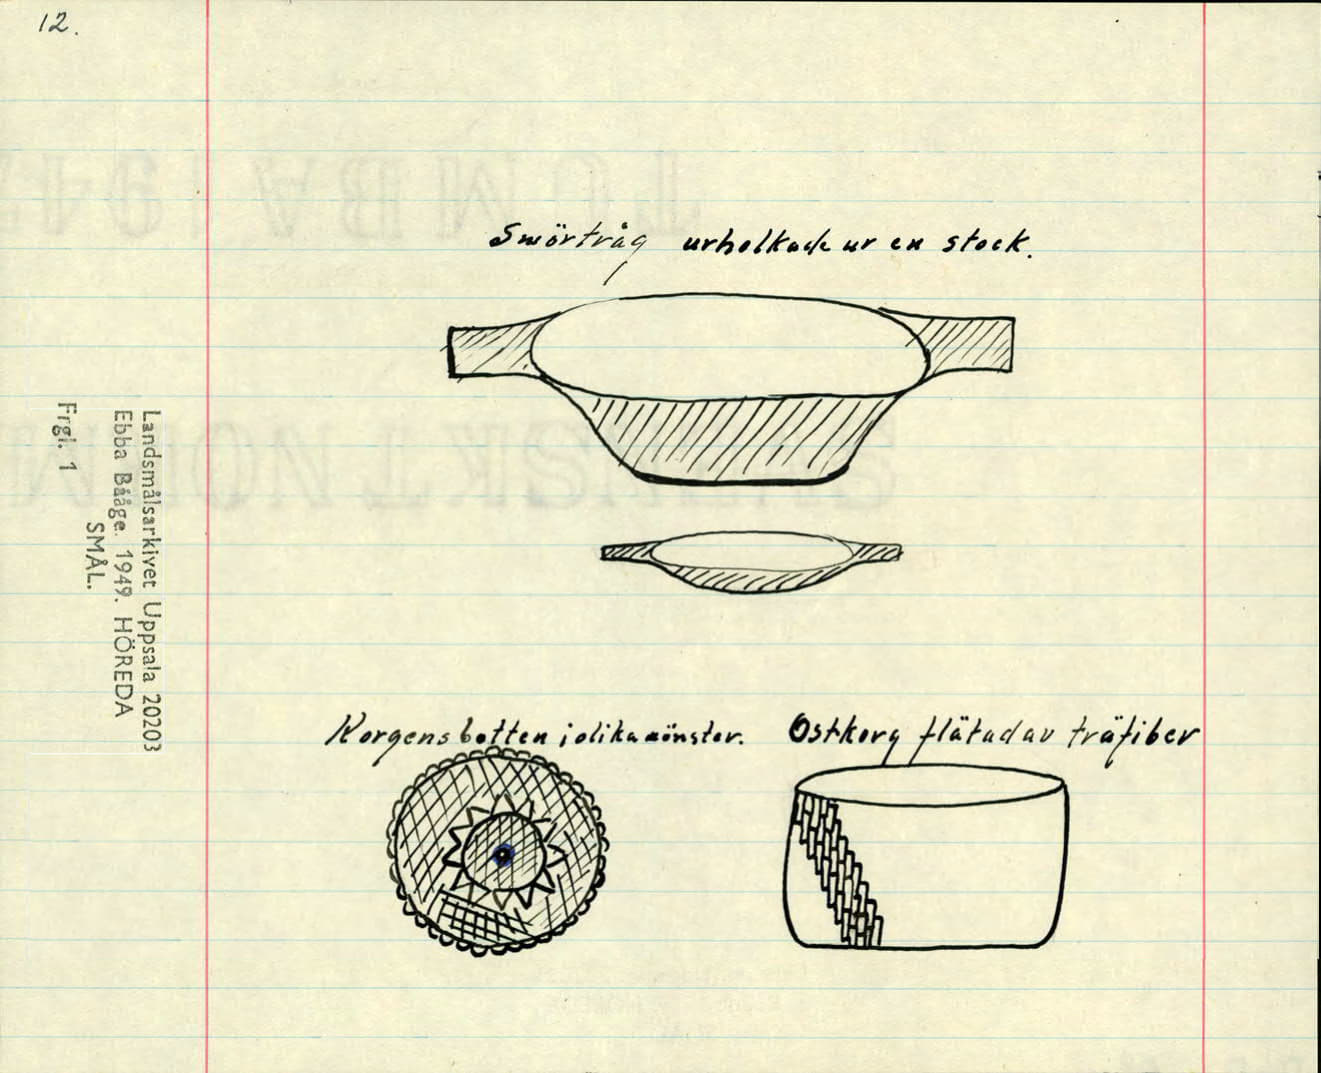 12.
Smörtråg urholkade ur en stock.
Landsmålsarkivet Uppsala 20203
Ebba Bååge. 1949. HÖREDA
SMÅL.
Frgl. 1
Korgens botten i olika mönster.
Ostkorg flätad av träfiber